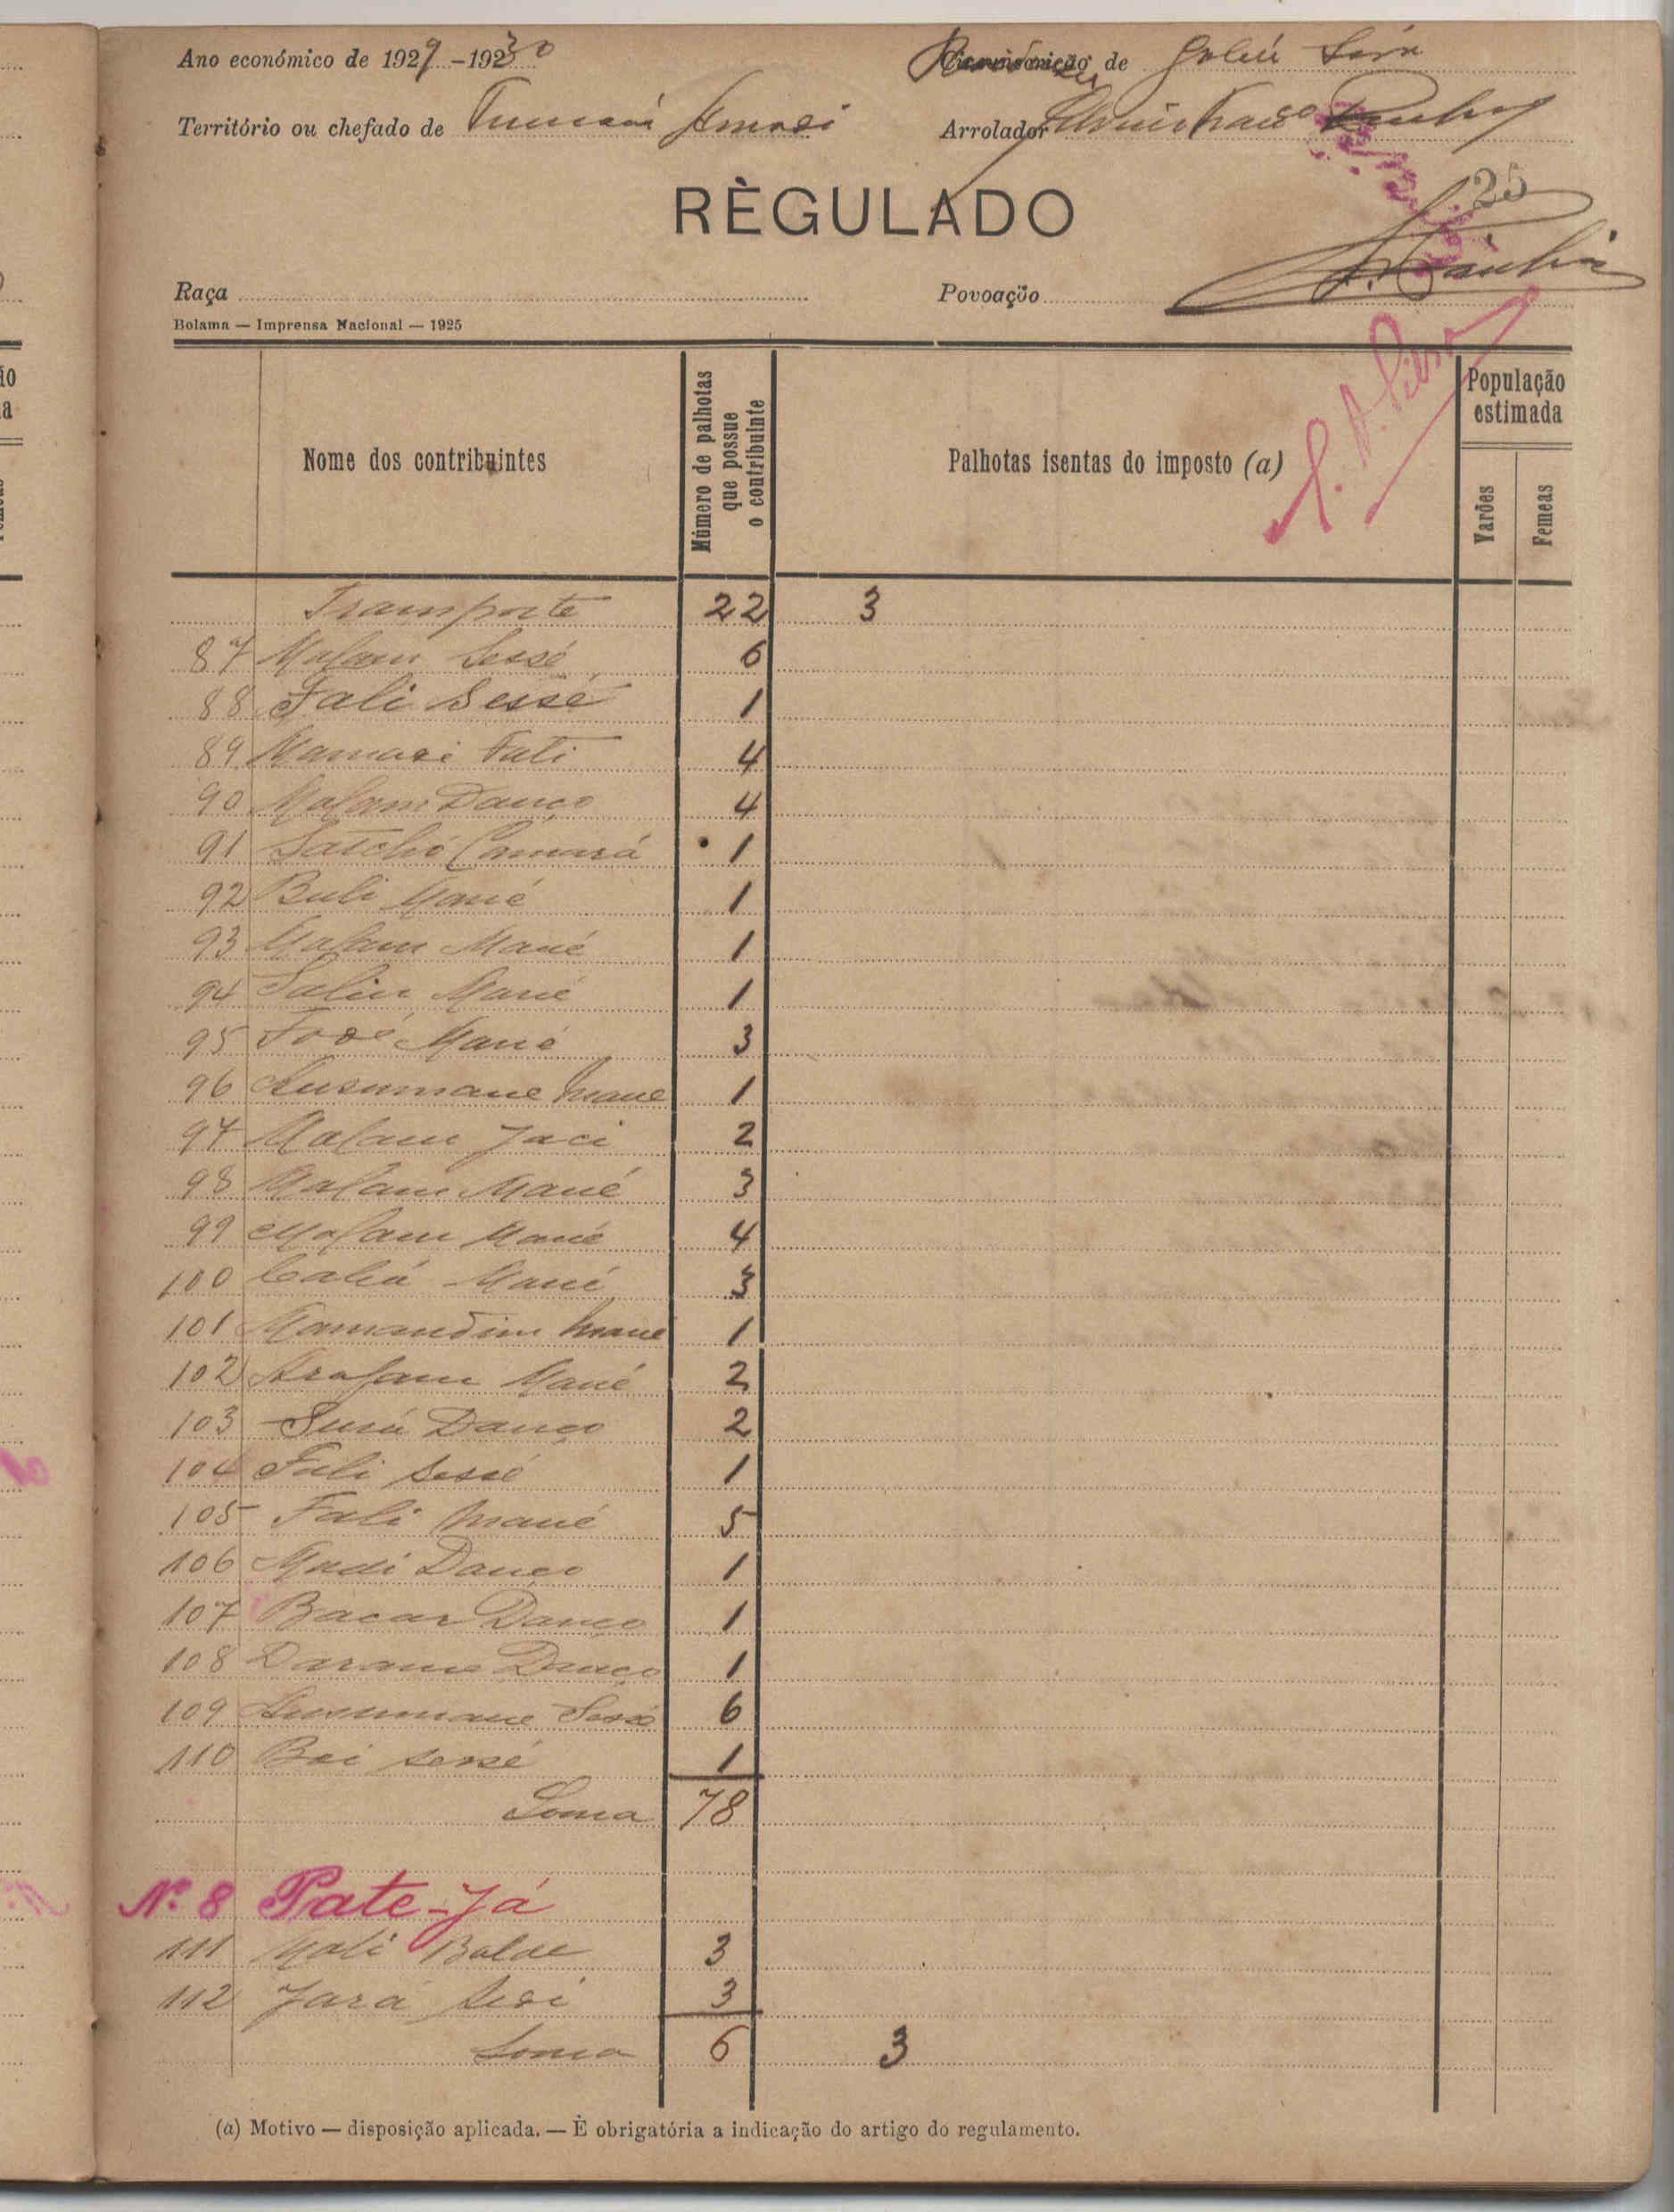 Ano económico de 1929-1930 de
Território ou chefado de Arrolador
25
RÈGULADO
Raça Povoação
Bolama — Imprensa Nacional — 1925
Nome dos contribuintes
Número de palhotas que possue o contribuinte
Palhotas isentas do imposto (a)
População estimada
Varões
Femeas
Transporte 22 3
87 Malam Sessé 6
88 Fali Sessé 1
89 Mamasi Fati 4
90 Malam Danço 4
91 Satchó Camará 1
92 Buli Mané 1
93 Malam Mané 1
94 Salin Mané 1
95 Mané 3
96 Lusumane Mane 1
97 Malam Jaci 2
98 Malam Mané 3
99 Malam Mané 4
100 Mané 3
101 Mamandim Mane 1
102 Arafam Mané 2
103 Danço 2
104 Fali Sessé 1
105 Fali Mané 5
106 Madi Danço 1
107 Bacar Danço 1
108 Darame Danço 1
109 Lusumane Sessé 6
110 Boi Sessé 1
Soma 78
Nº 8 Pate-Já
111 Mali Balde 3
112 Jará 3
Soma 6 3
(a) Motivo — disposição aplicada. — È obrigatória a indicação do artigo do regulamento.